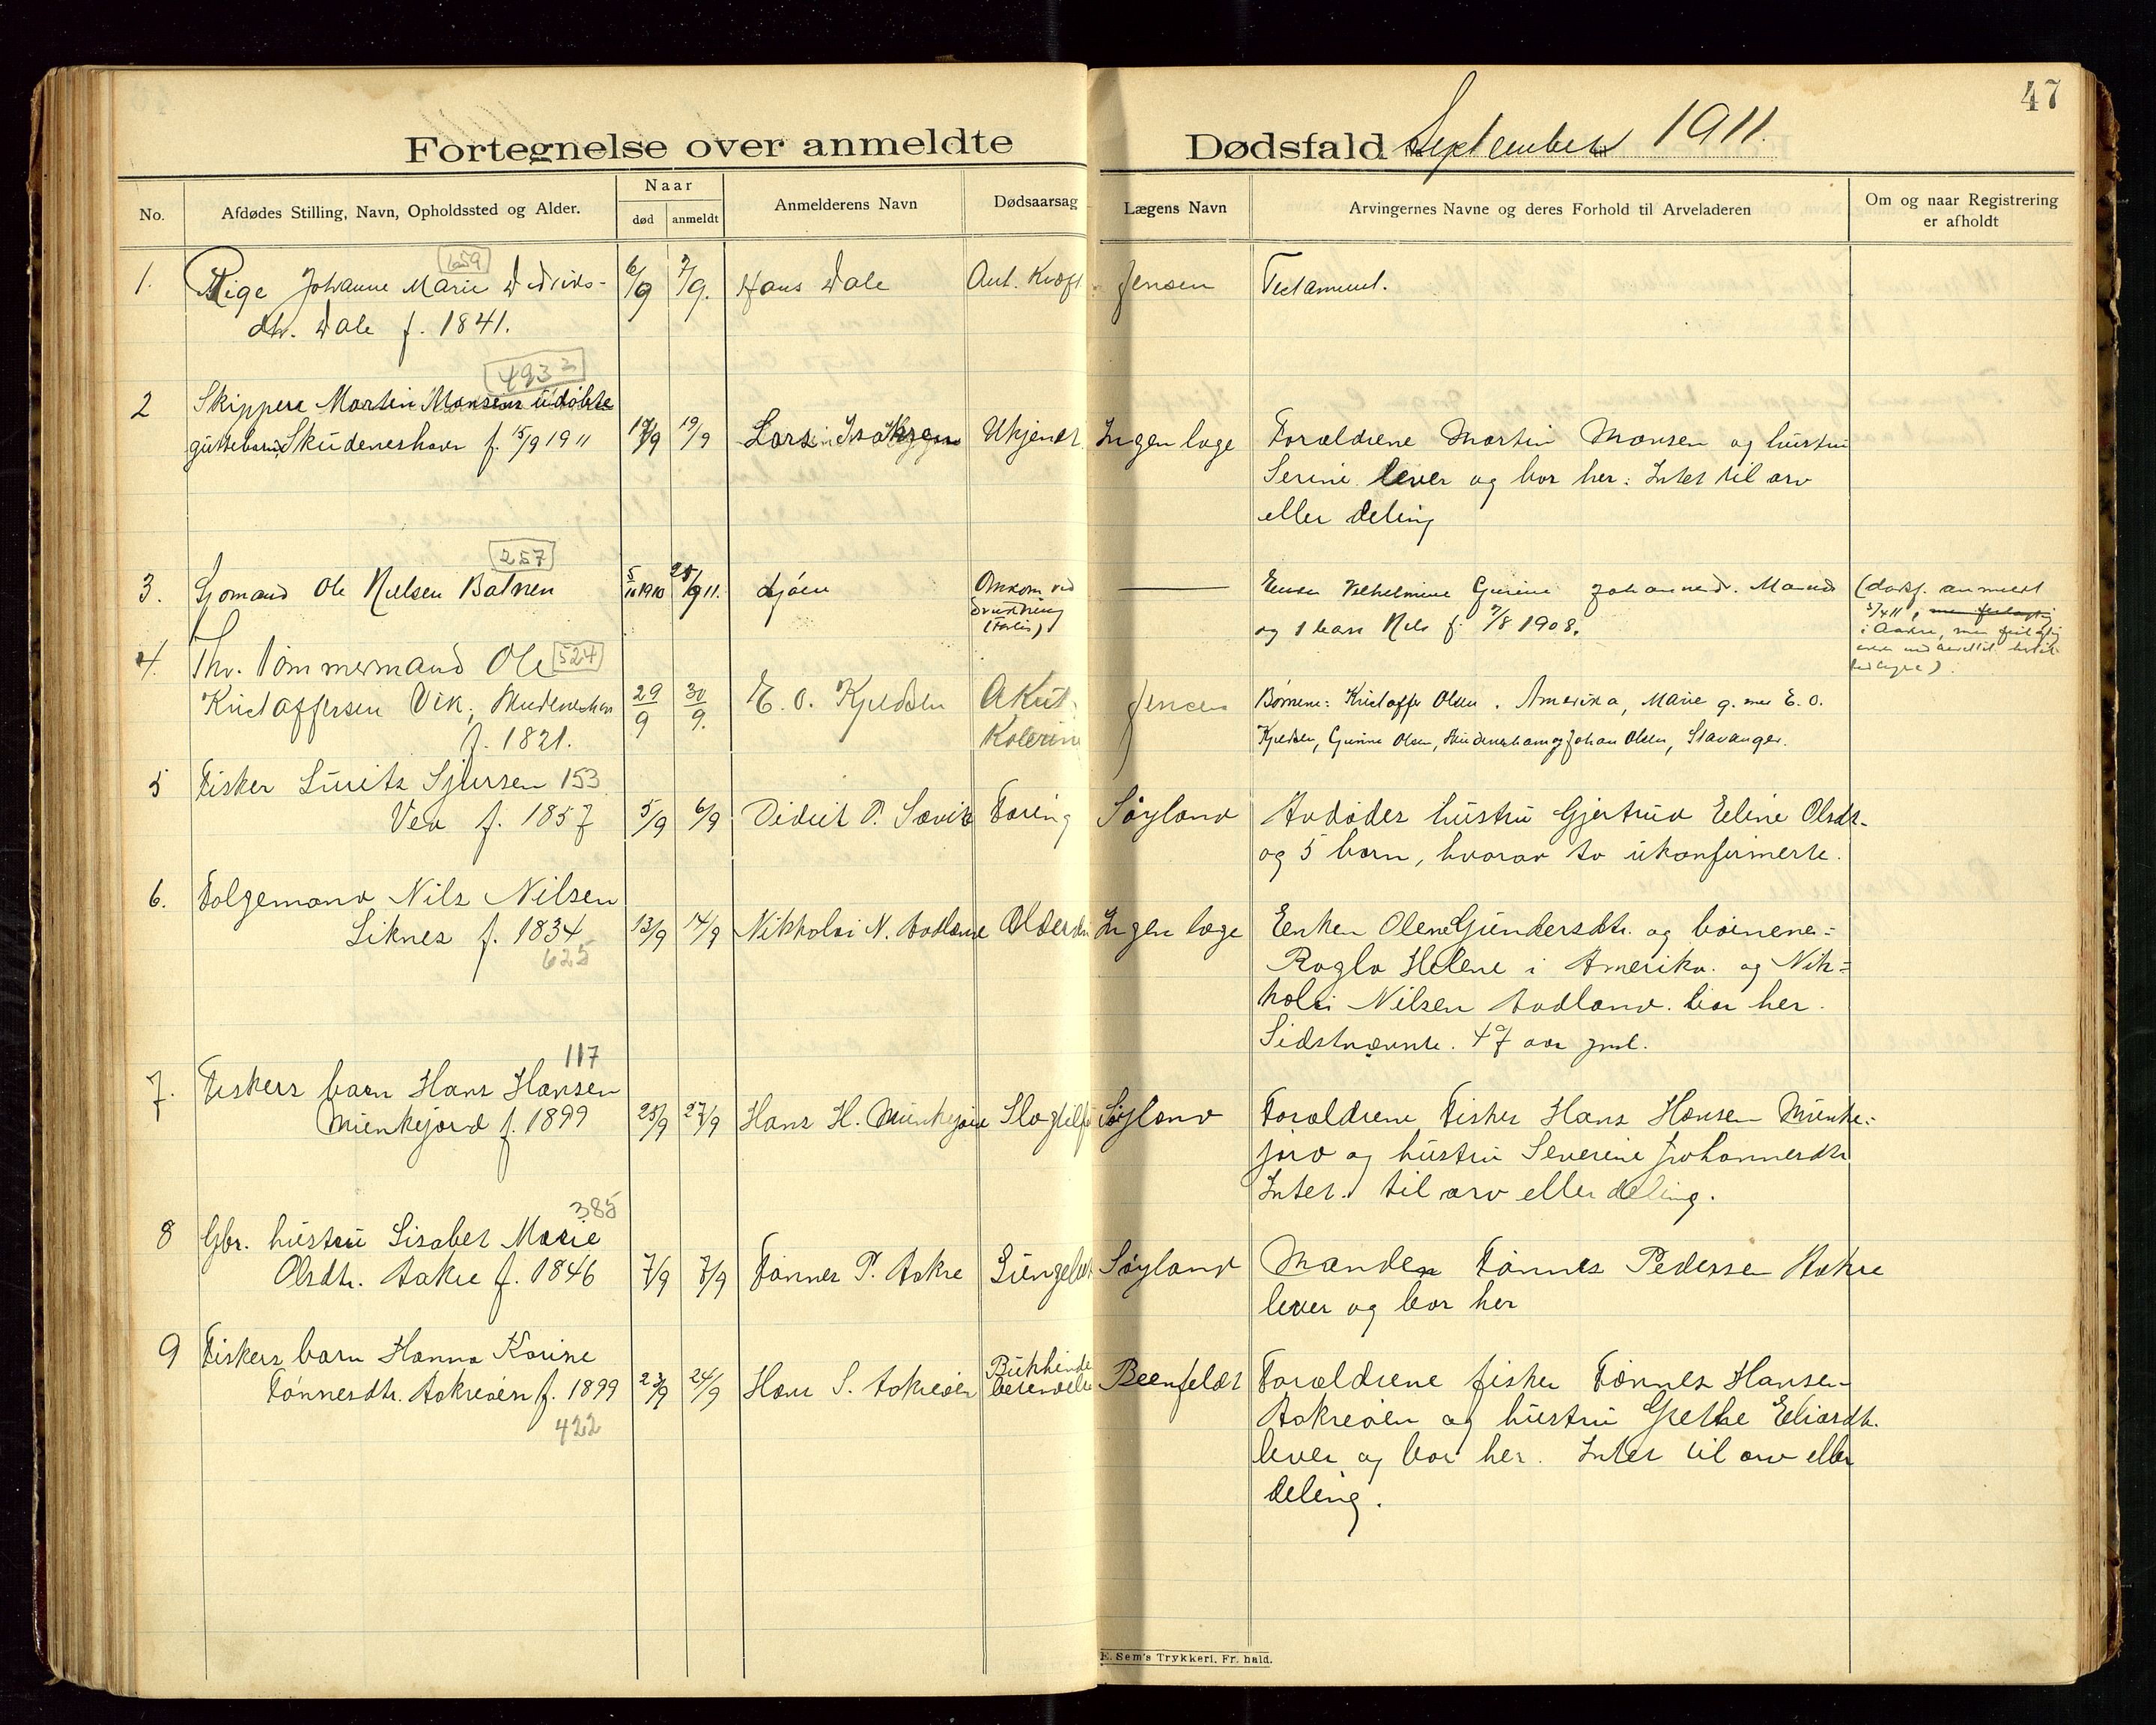 47
Fortegnelse over anmeldte Dødsfald September 1911.
No. Afdødes Stilling, Navn, Opholdssted og Alder. Naar død anmeldt Anmelderens Navn Dødsaarsag Lægens Navn Arvingernes Navne og deres Forhold til Arveladeren Om og naar Registrering er afholdt
659
1. Pige Johanne Marie Didriks- 6/9 7/9. Hans Dale Ant. Kræft Jensen Testament.
dtr. Dale f. 1841.
4933
2 Skippere Martin Monsens udøbte
guttebarn, Skudeneshavn f. 15/9 1911 17/9 19/9 Lars Isaksen Ukjendt Ingen læge Forældrene Martin Monsen og hustru
Serine lever og bor her. Intet til arv
eller deling
257
3. Sjømand Ole Nielsen Batnen 5/10 1910 25/9 11. Sjøen Omkom ved drukning (Forlis) — Enken Vilhelmine Gurine Johannesd. Maand
og 1 barn Nils f. 7/8 1908.
(dødsf. anmeldt
3/4 11,
i Aakre,
4. Fhv. Tømmermand Ole 524
Kristoffersen Vik, Skudeneshavn 29/9 30/9. E. O. Kjeldsen Akut. Jensen Børnene: Kristoffer Olsen, Amerika, Marie g. med E. O.
f. 1821. Kolerine Kjeldsen, Gurine Olsen, Skudeneshavn og Johan Olsen, Stavanger.
5 Fisker Lauritz Sjursen 153
Vea f. 1857 5/9 6/9 Didrik P. Sævik Tæring Søyland Avdødes hustru Gjertrud Eeline Olsdt.
og 5 barn, hvorav to ukonfirmerte.
6. Folgemand Nils Nilsen
Liknes f. 1834 13/9 14/9 Nikholai N. Avdland Alderdom Ingen læge Enken Olene Gundersdtr. og børnene:
625
Ragla Helene i Amerika. og Nik=
holai Nilsen Avdland. bor her.
Sidstnævnte. 47 aar gml.
117
7. Fiskers barn Hans Hansen
Munkejord f. 1899 25/9 27/9 Hans H. Munkejord Slagtilf Søyland Forældrene Fisker Hans Hansen Munke=
jord og hustru Severine Johannesdtr
Intet til arv eller deling.
385
8 Gbr. hustru Lisabet Marie
Olsdtr. Aakre f. 1846 7/9 7/9 Tønnes P. Aakre Lungebet Søyland Manden Tønnes Pedersen Aakre
lever og bor her
9 Fiskers barn Hanna Karine
Tønnesdtr. Aakreøen f. 1899 23/9 24/9 Hans S. Aakreøen Bukhinde betændelse Beenfeldt Forældrene fisker Tønnes Hansen
422
Aakreøen og hustru Grethe Eliasdt.
lever og bor her. Intet til arv eller
deling.
E. Sem's Trykkeri, Fr.hald.